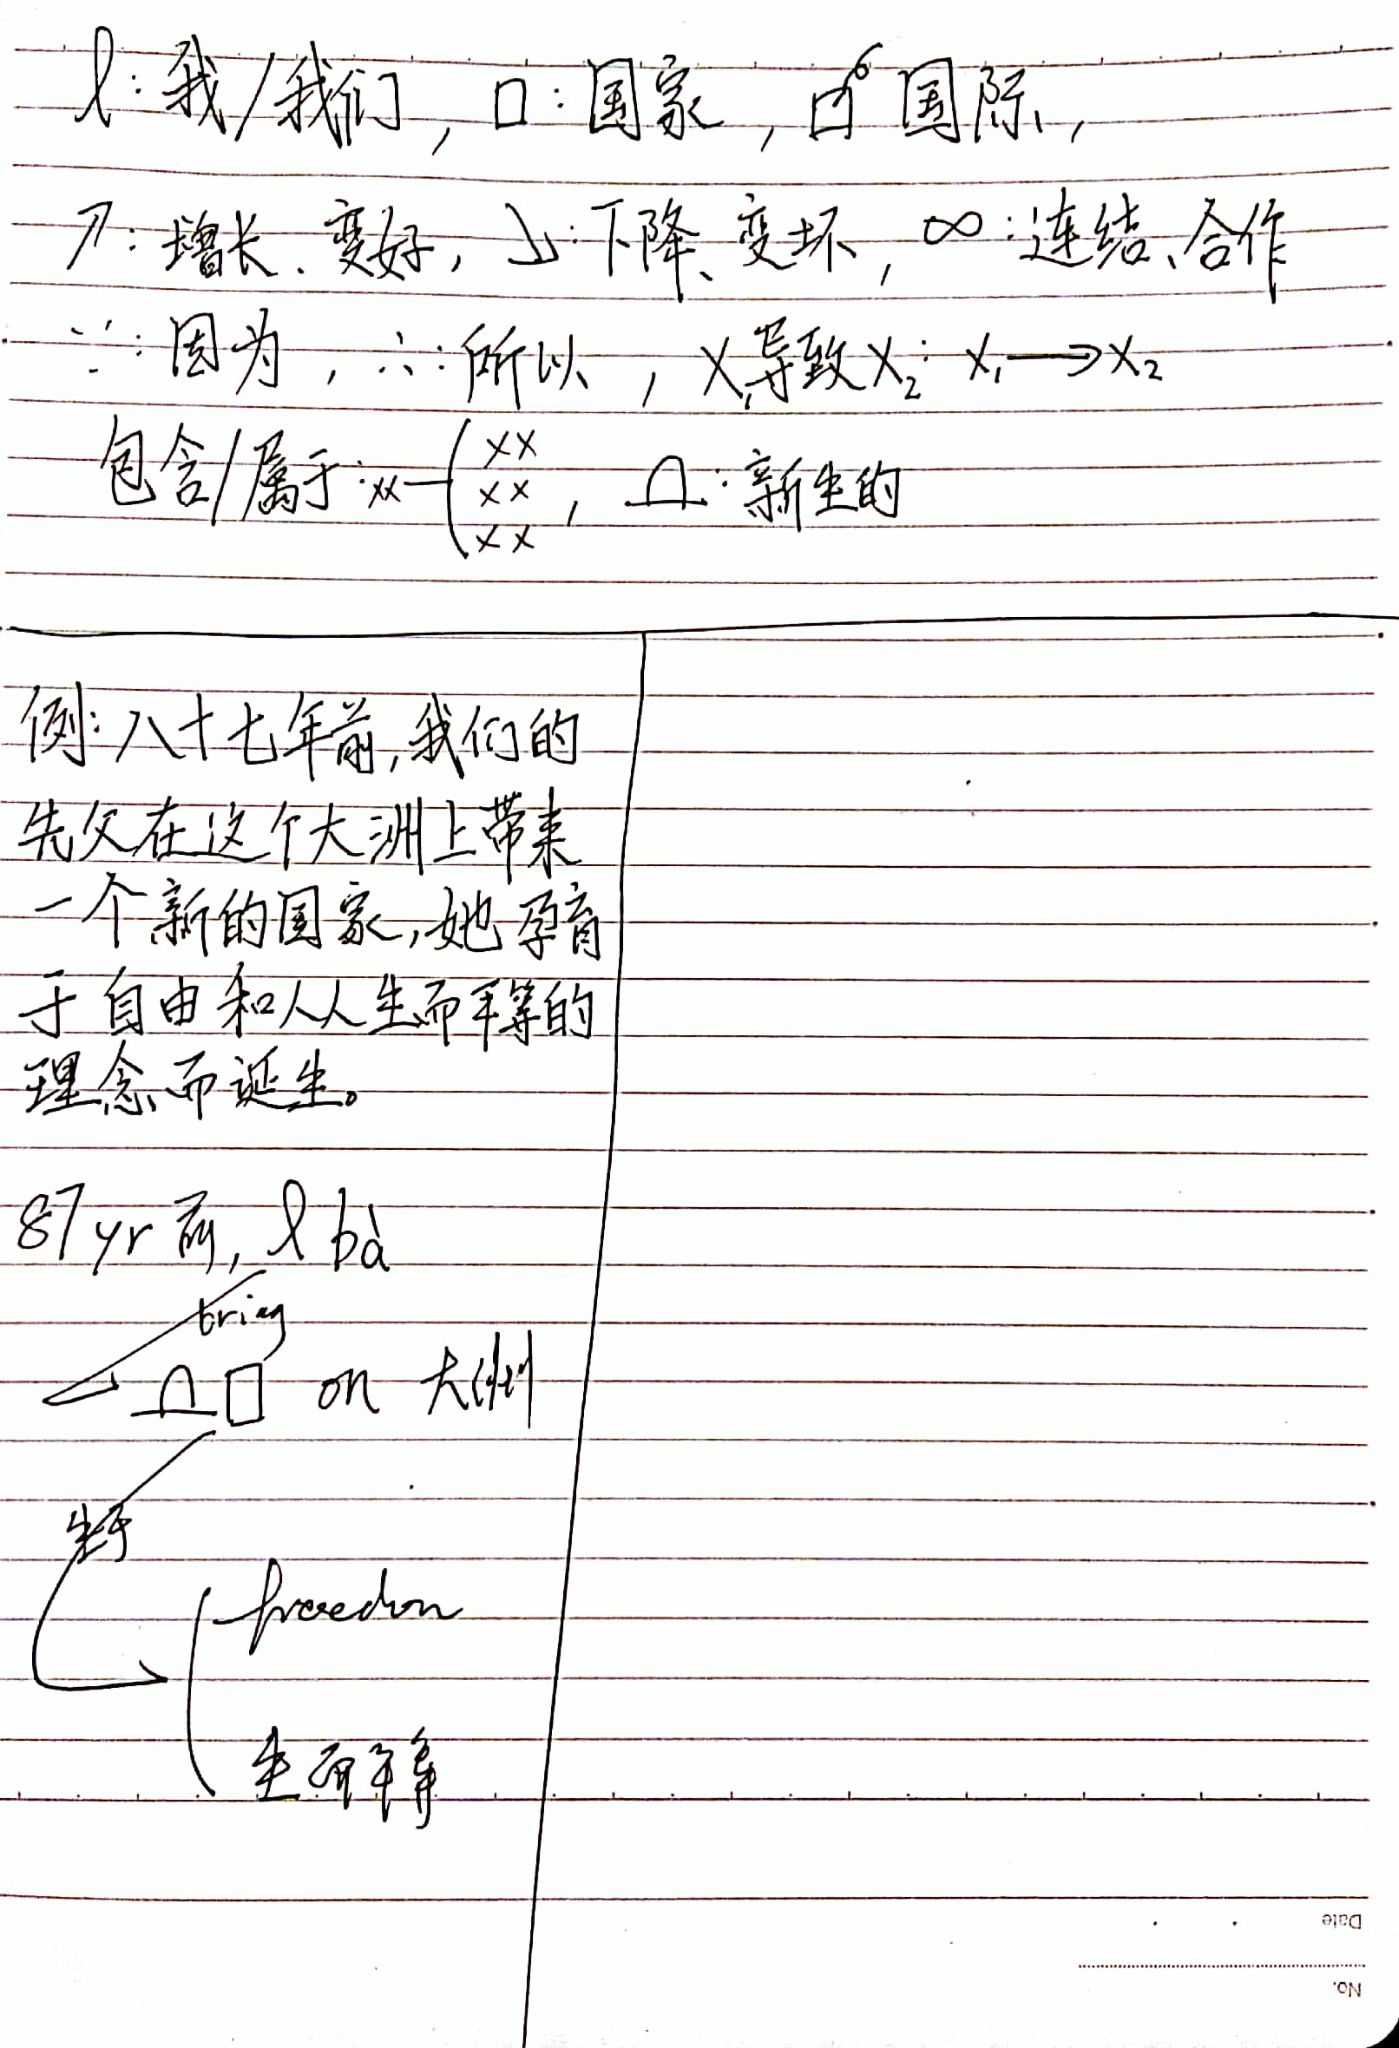 l: 我/我们, □: 国家, 国际,
↗: 增长、变好, ↘: 下降、变坏, ∞: 连结、合作
∵: 因为, ∴: 所以, X₁导致X₂: X₁→X₂
包含/属于: xx—( xx xx xx, Ω: 新生的
例: 八十七年前,我们的
先父在这个大洲上带来
一个新的国家,她孕育
于自由和人人生而平等的
理念而诞生。
87yr前, l bà
bring
Ω□ on 大洲
生于
freedom
生而平等
Date
No.